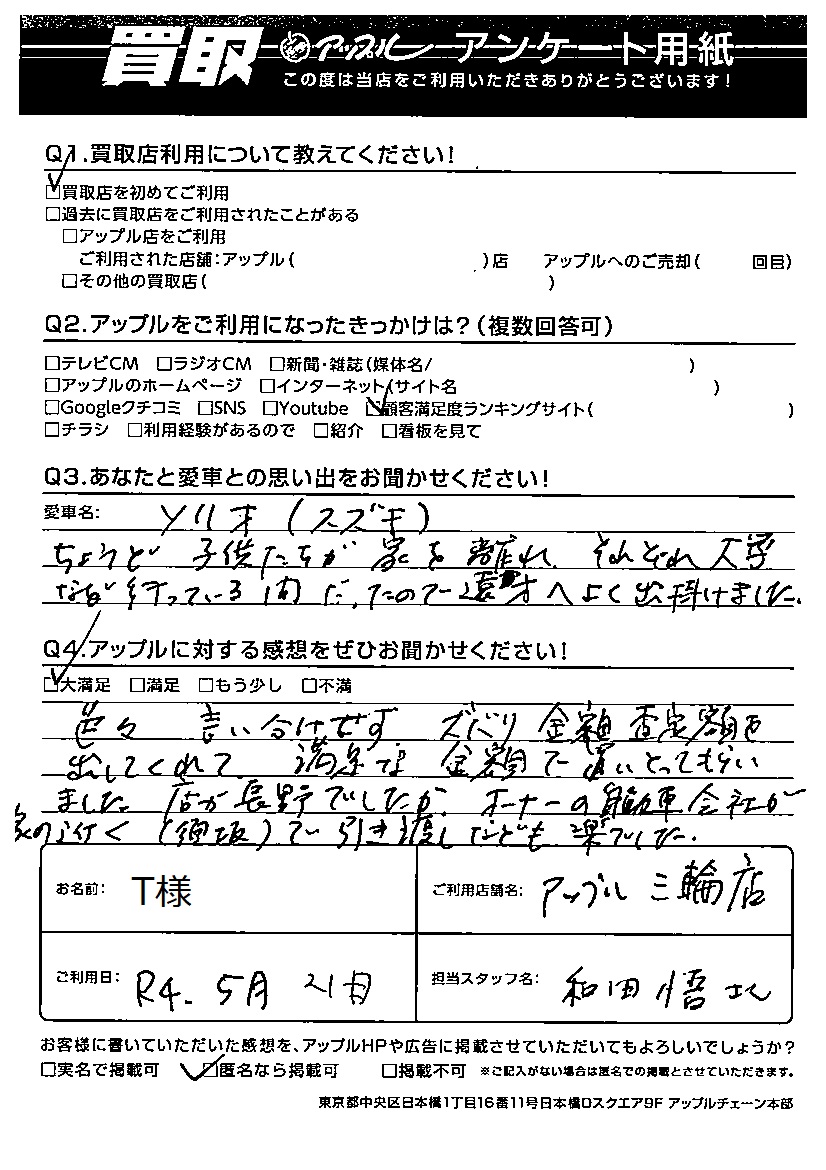 買取 アップル アンケート用紙
この度は当店をご利用いただきありがとうございます!
Q1.買取店利用について教えてください!
☑買取店を初めてご利用
□過去に買取店をご利用されたことがある
□アップル店をご利用
ご利用された店舗:アップル( )店 アップルへのご売却( 回目)
□その他の買取店( )
Q2.アップルをご利用になったきっかけは?(複数回答可)
□テレビCM □ラジオCM □新聞・雑誌(媒体名/ )
□アップルのホームページ □インターネット(サイト名 )
□Googleクチコミ □SNS □Youtube ☑顧客満足度ランキングサイト( )
□チラシ □利用経験があるので □紹介 □看板を見て
Q3.あなたと愛車との思い出をお聞かせください!
愛車名: ソリオ(スズキ)
ちょうど 子供たちが 家を 離れ それぞれ 大学
など 行っている 間 だったので 遠方へ よく 出掛けました。
Q4.アップルに対する感想をぜひお聞かせください!
☑大満足 □満足 □もう少し □不満
色々 言い合わせず ズバリ 金額 査定額を
出してくれて 満足な 金額で 買いとってもらい
ました 店が 長野でしたが、オーナーの 自動車会社が
家の近く (須坂)で 引き渡しなども 楽でした。
お名前: T様
ご利用店舗名: アップル 三輪店
ご利用日: R4. 5月 21日
担当スタッフ名: 和田 悟
お客様に書いていただいた感想を、アップルHPや広告に掲載させていただいてもよろしいでしょうか?
□実名で掲載可 ☑匿名なら掲載可 □掲載不可 ※ご記入がない場合は匿名での掲載とさせていただきます。
東京都中央区日本橋1丁目16番11号日本橋Dスクエア9F アップルチェーン本部